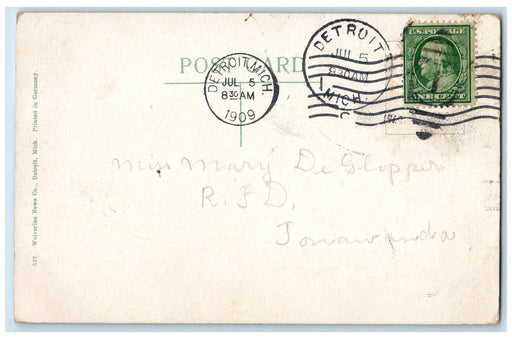 POST CARD
DETROIT, MICH.
JUL 5
8 30 AM
1909
DETROIT
JUL 5
8 30 AM
MICH.
U.S. POSTAGE
ONE CENT
Miss Mary De Glopper
R.F.D,
Tonawanda
522 Wolverine News Co., Detroit, Mich. Printed in Germany.